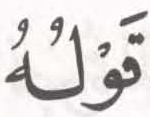 قَوْلُهُ